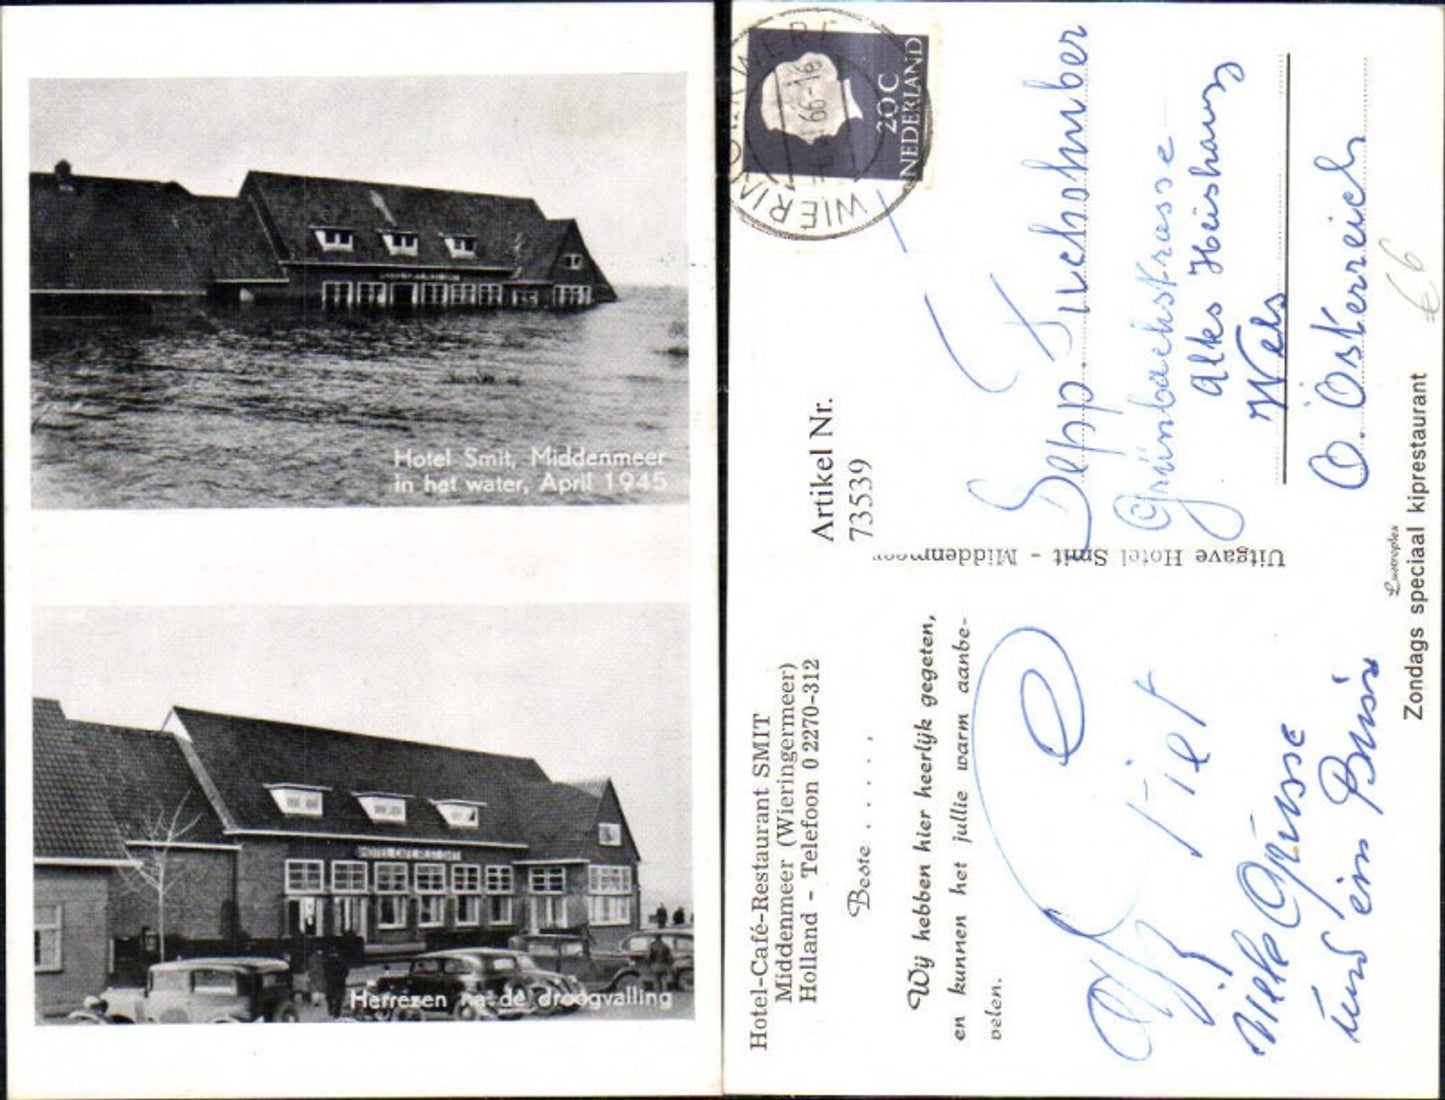 Hotel Smit, Middenmeer
in het water, April 1945
HOTEL CAFE REST SMIT
Herrezen na de droogvalling
Hotel-Café-Restaurant SMIT
Middenmeer (Wieringermeer)
Holland - Telefoon 0 2270-312
Beste . . . . .
Wij hebben hier heerlijk gegeten,
en kunnen het jullie warm aanbe-
velen.
Viele Grüsse
und ein Bussi
Uitgave Hotel Smit - Middenmeer
Artikel Nr.
73539
NEDERLAND
20 C
WIERINGERWERF
66-16
Sepp. Fuchshuber
Grünbachstrasse
Altes
Wels
O. Österreich
€6
Luxereplex
Zondags speciaal kiprestaurant